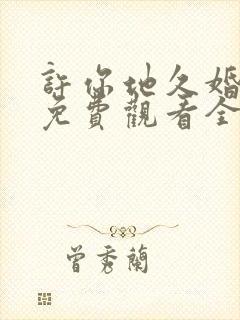 許你地久婚
免費觀看全
曾秀蘭